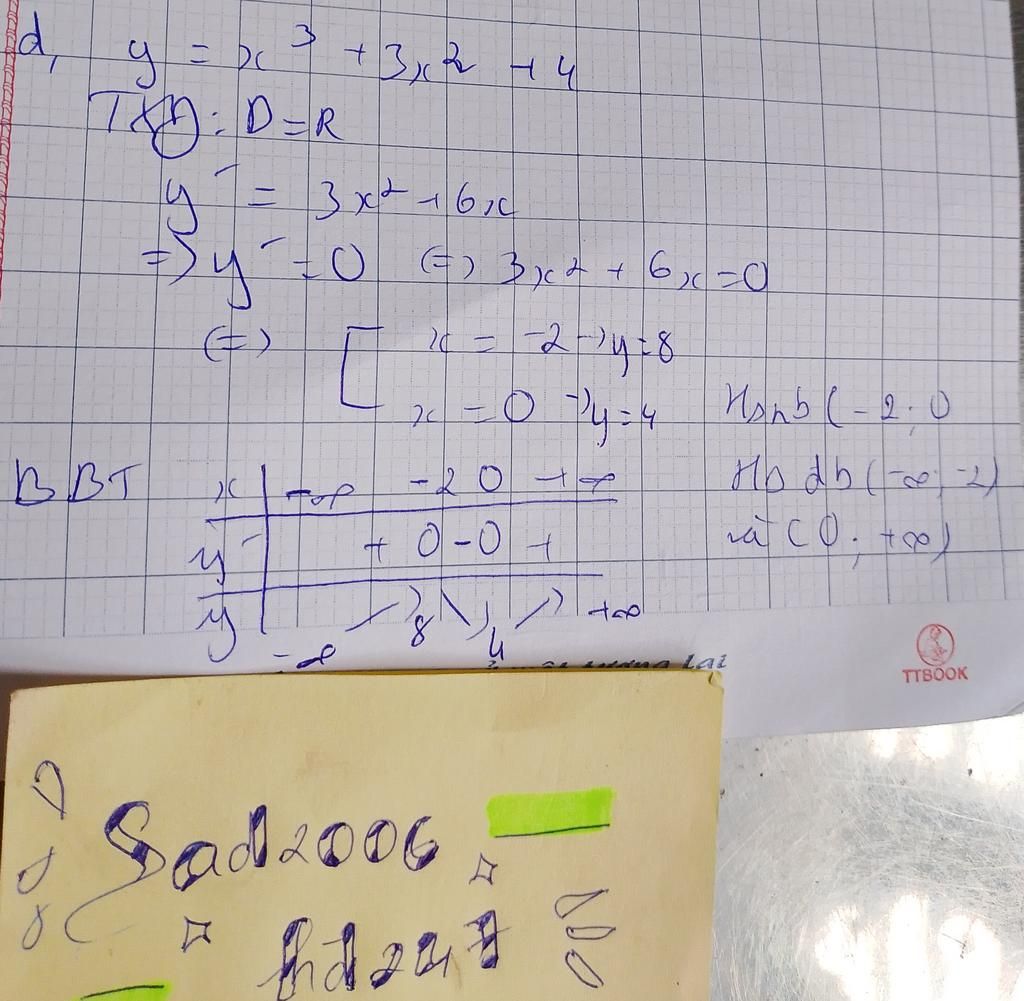 d, y = x³ + 3x² + 4
TXĐ: D = R
y' = 3x² + 6x
=> y' = 0 (=) 3x² + 6x = 0
(=) [ x = -2 -> y = 8
x = 0 -> y = 4
Hsnb (-2; 0
BBT x | -∞ -2 0 +∞
Hs db (-∞; -2)
y' | + 0 - 0 +
và (0; +∞)
y | -∞ 8 4 +∞
lai
TTBOOK
Sad2006
hd247